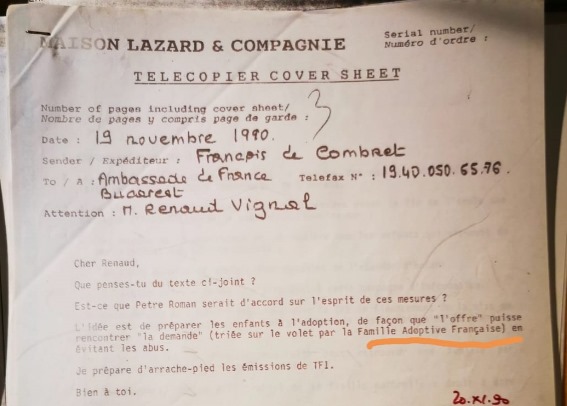 MAISON LAZARD & COMPAGNIE
Serial number/
Numéro d'ordre :
TELECOPIER COVER SHEET
Number of pages including cover sheet/
Nombre de pages y compris page de garde : 3
Date : 19 novembre 1990.
Sender / Expéditeur : François de Combret
To / A : Ambassade de France Telefax N° : 19.40.050.65.76.
Bucarest
Attention : M. Renaud Vignal
Cher Renaud,
Que penses-tu du texte ci-joint ?
Est-ce que Petre Roman serait d'accord sur l'esprit de ces mesures ?
L'idée est de préparer les enfants à l'adoption, de façon que "l'offre" puisse
rencontrer "la demande" (triée sur le volet par la Famille Adoptive Française) en
évitant les abus.
Je prépare d'arrache-pied les émissions de TF1.
Bien à toi.
20.XI.90